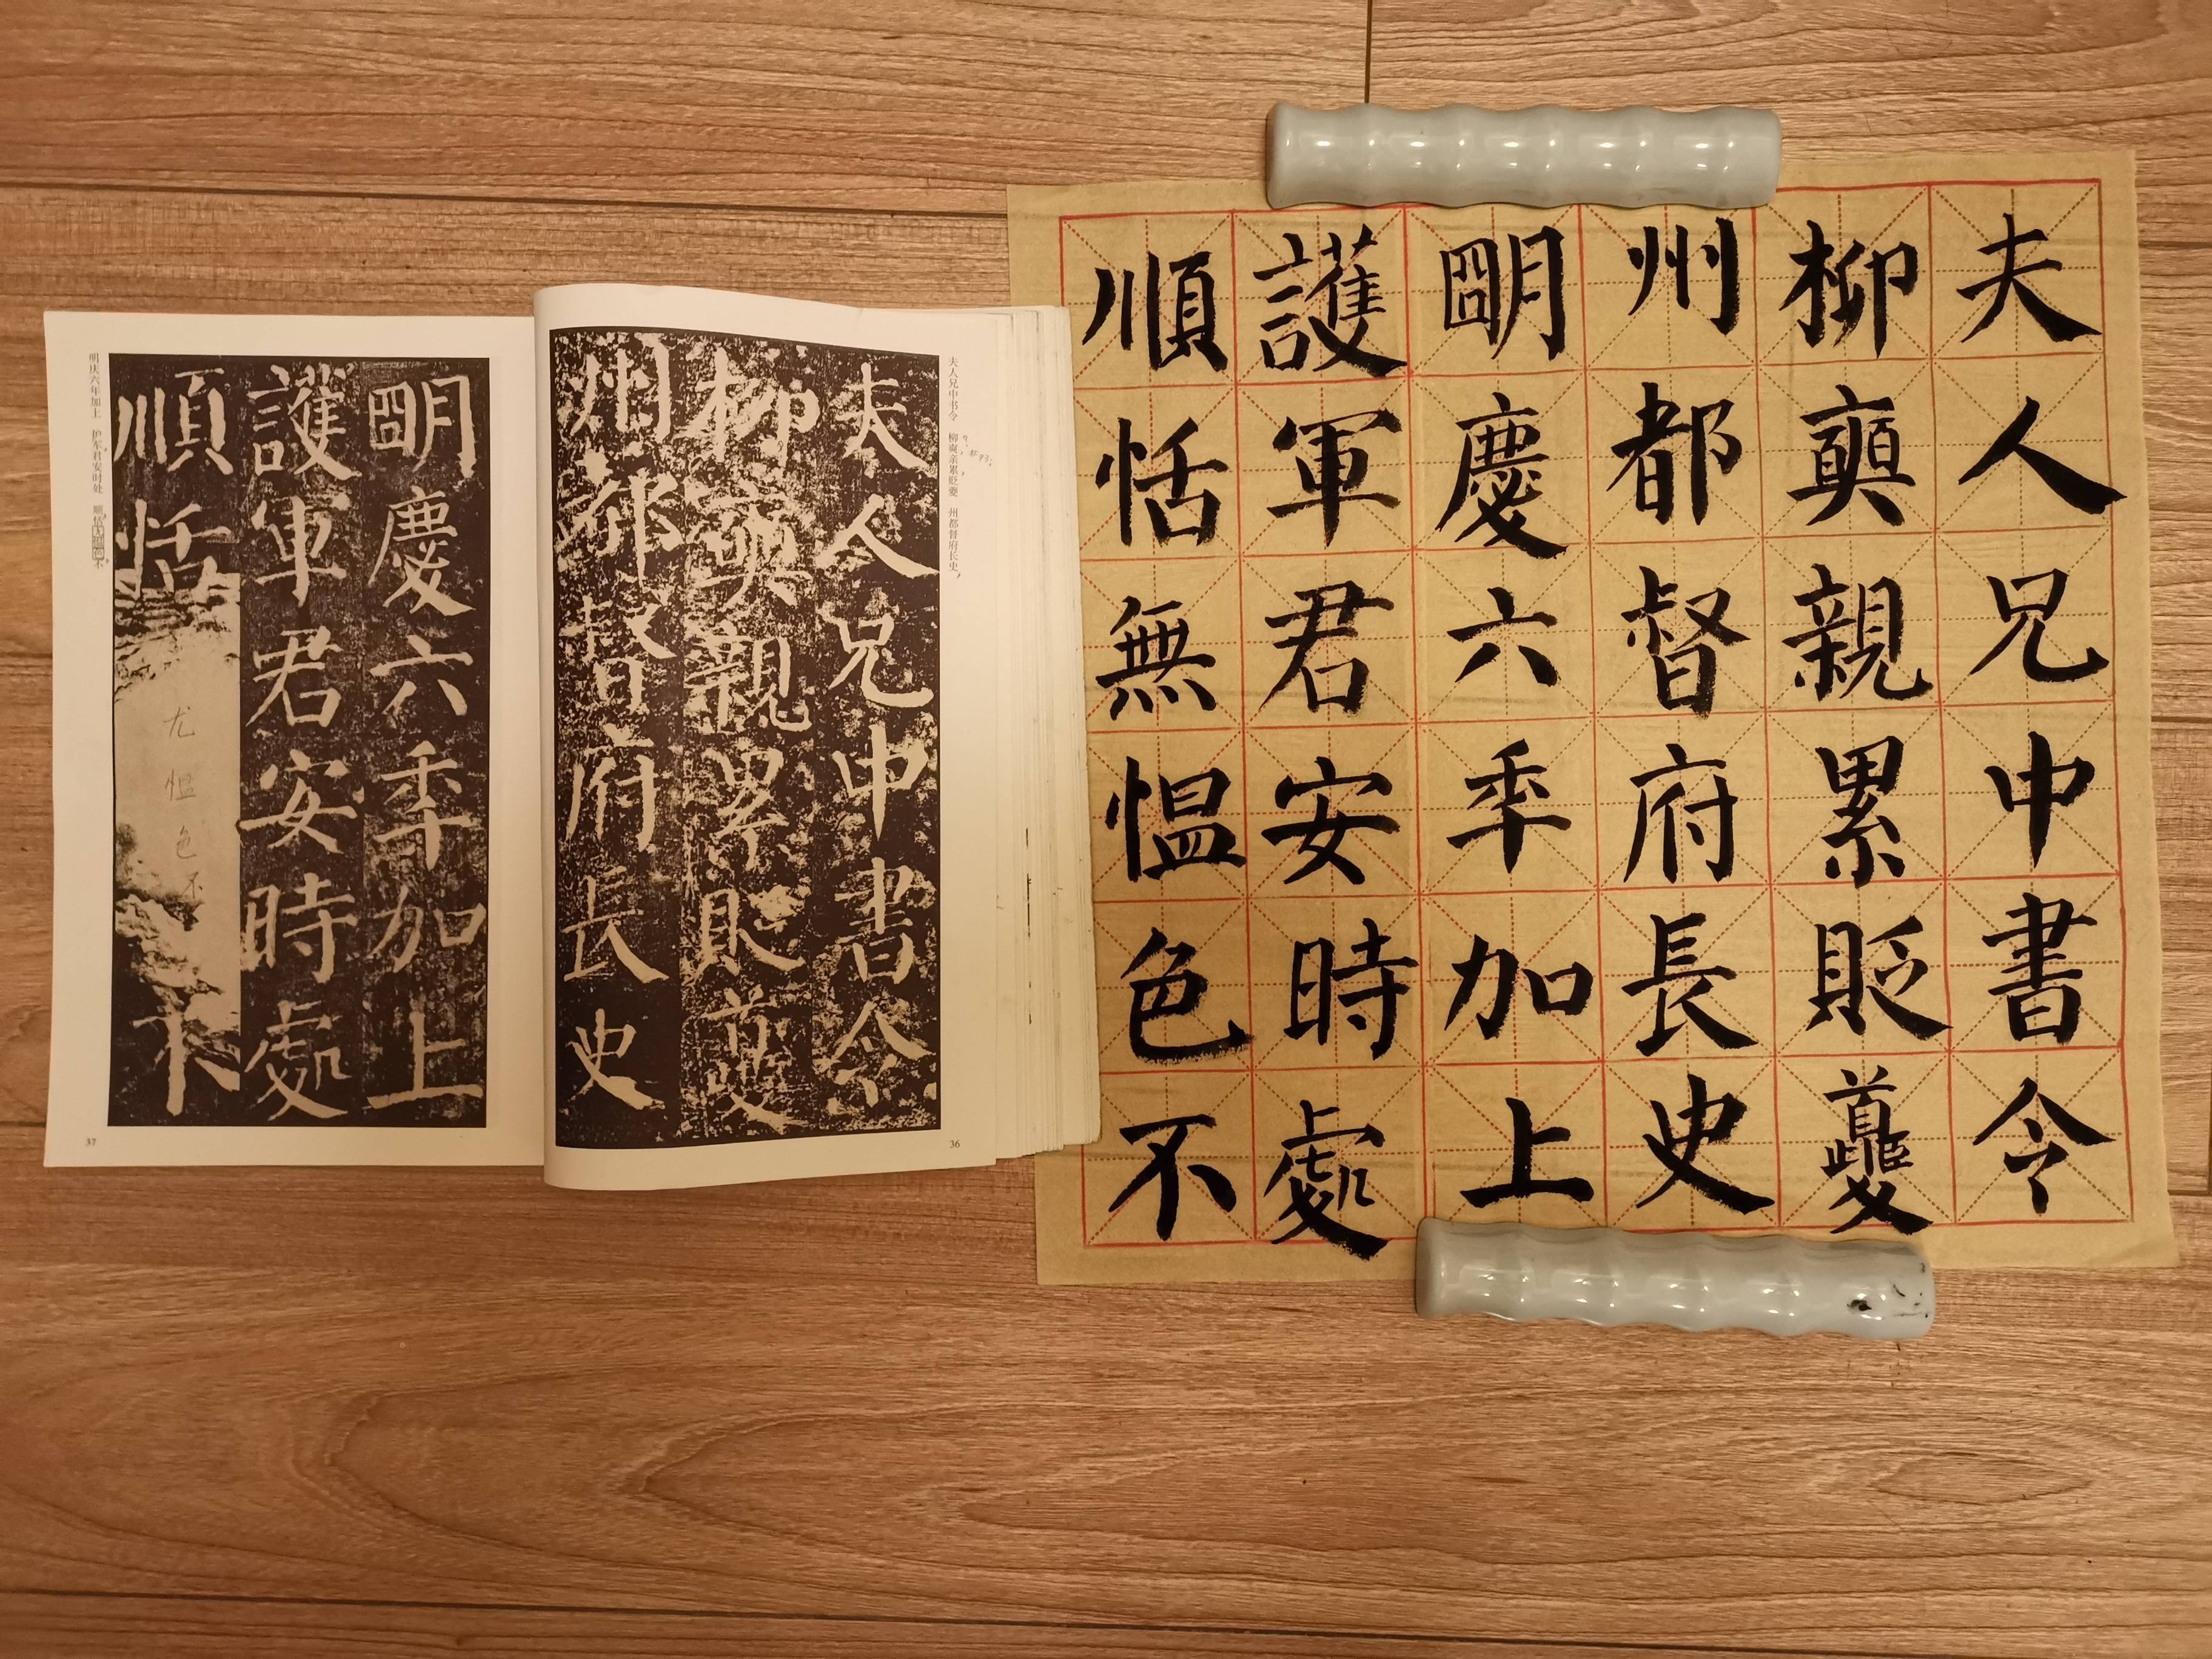 夫人兄中書令
柳奭親累貶夔
州都督府長史
明慶六年加上
護軍君安時處
順恬無愠色不
夫人兄中书令 柳奭亲累贬夔 州都督府长史
夫人兄中書令
柳奭親累貶夔
州都督府長史
36
明慶六年加上
護軍君安時處
順恬
尤
愠
色
不
不
明庆六年加上 护军君安时处 顺恬无愠色不
37